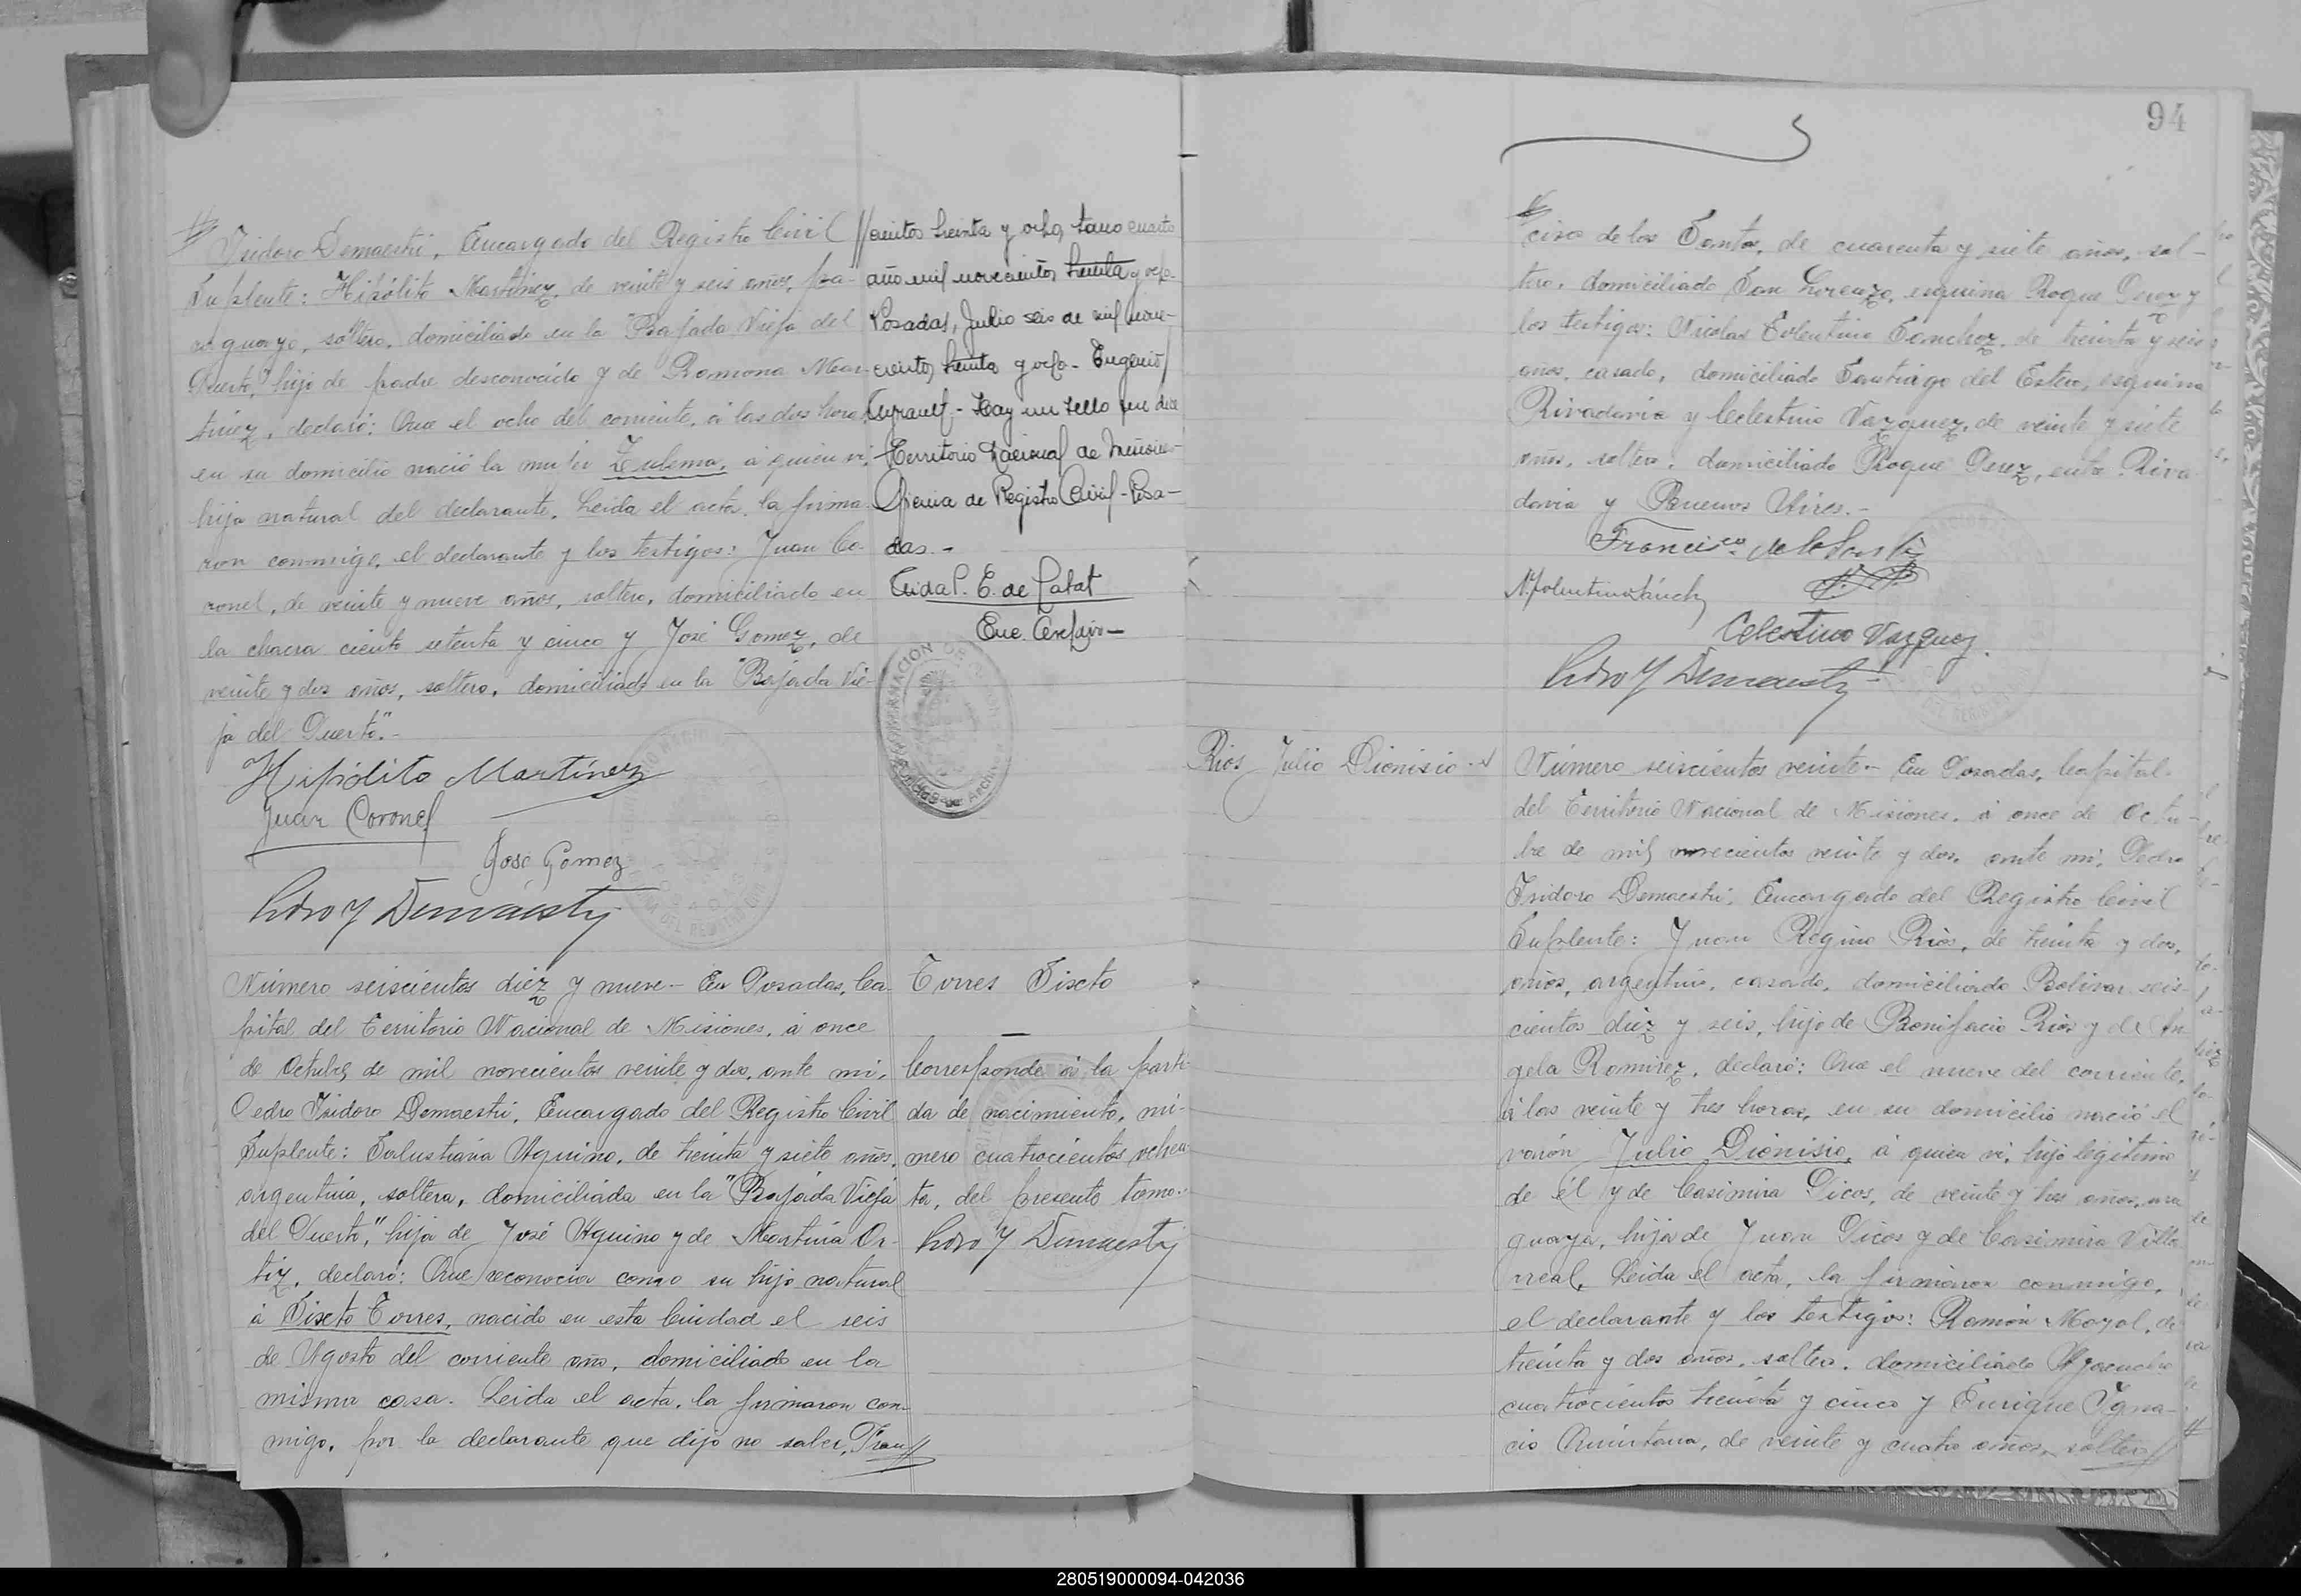 Isidoro Demaestri, Encargado del Registro Civil
Suplente: Hipólito Martinez, de veinte y seis años, pa-
raguayo, soltero, domiciliado en la "Bajada Vieja del
Puerto," hijo de padre desconocido y de Romona Mar-
tinez, declaró: Que el ocho del corriente, á las dos horas
en su domicilio nació la mujer Zulema, á quien vi,
hija natural del declarante. Leida el acta, la firma-
ron conmigo, el declarante y los testigos: Juan Co-
ronel, de veinte y nueve años, soltero, domiciliado en
la chacra ciento setenta y cinco y José Gomez, de
veinte y dos años, soltero, domiciliado en la "Bajada Vie-
ja del Puerto".-
Hipólito Martínez
Juan Coronel
José Gomez
Pedro Y Demaestri
cientos treinta y ocho, tomo cuarto
año mil novecientos treinta y ocho-
Posadas, Julio seis de mil nove-
cientos treinta y ocho- Eugenio
- Hay un sello que dice
Territorio Nacional de Misiones-
Oficina de Registro Civil- Posa-
das.-
E. de
Enc. Archivo-
Número seiscientos diez y nueve- En Posadas, Ca-
pital del Territorio Nacional de Misiones, á once
de Octubre de mil novecientos veinte y dos, ante mi,
Pedro Isidoro Demaestri, Encargado del Registro Civil
Suplente: Salustiana Aquino, de treinta y siete años,
argentina, soltera, domiciliada en la "Bajada Vieja
del Puerto," hija de José Aquino y de Martina Or-
tiz, declaró: Que reconocia como su hijo natural
á Sixto Torres, nacido en esta Ciudad el seis
de Agosto del corriente año, domiciliado en la
misma casa. Leida el acta, la firmaron con-
migo, por la declarante que dijo no saber, Fran//
Torres Sixto
Corresponde á la parti-
da de nacimiento, nú-
mero cuatrocientos ochen-
ta, del presente tomo.-
Pedro Y Demaestri
94
cisco de los Santos, de cuarenta y siete años, sol-
tero, domiciliado San Lorenzo, esquina Roque Perez y
los testigos: Nicolas Tolentino Sanchez, de treinta y seis
años, casado, domiciliado Santiago del Estero, esquina
Rivadavia y Celestino Vazquez, de veinte y siete
años, soltero, domiciliado Roque Perez, entre Riva-
davia y Buenos Aires.-
Francisco de los Santos
N. Tolentino Sánchez
Celestino Vazquez.
Pedro Y Demaestri
Rios Julio Dionisio
Número seiscientos veinte- En Posadas, Capital
del Territorio Nacional de Misiones, á once de Octu-
bre de mil novecientos veinte y dos, ante mi, Pedro
Isidoro Demaestri, Encargado del Registro Civil
Suplente: Juan Regino Rios, de treinta y dos
años, argentino, casado, domiciliado Bolivar seis-
cientos diez y seis, hijo de Bonifacio Rios y de An-
gela Romirez, declaró: Que el nueve del corriente,
á las veinte y tres horas, en su domicilio nació el
varón Julio Dionisio, á quien vi, hijo legitimo
de él y de Casimira Picos, de veinte y tres años, uru-
guaya, hija de Juan Picos y de Casimira Villa-
rreal, Leida el acta, la firmaron conmigo,
el declarante y los testigos: Ramón Mayol, de
treinta y dos años, soltero, domiciliado Ayacucho
cuatrocientos treinta y cinco y Enrique Igna-
cio Quintana, de veinte y cuatro años, soltero//
280519000094-042036